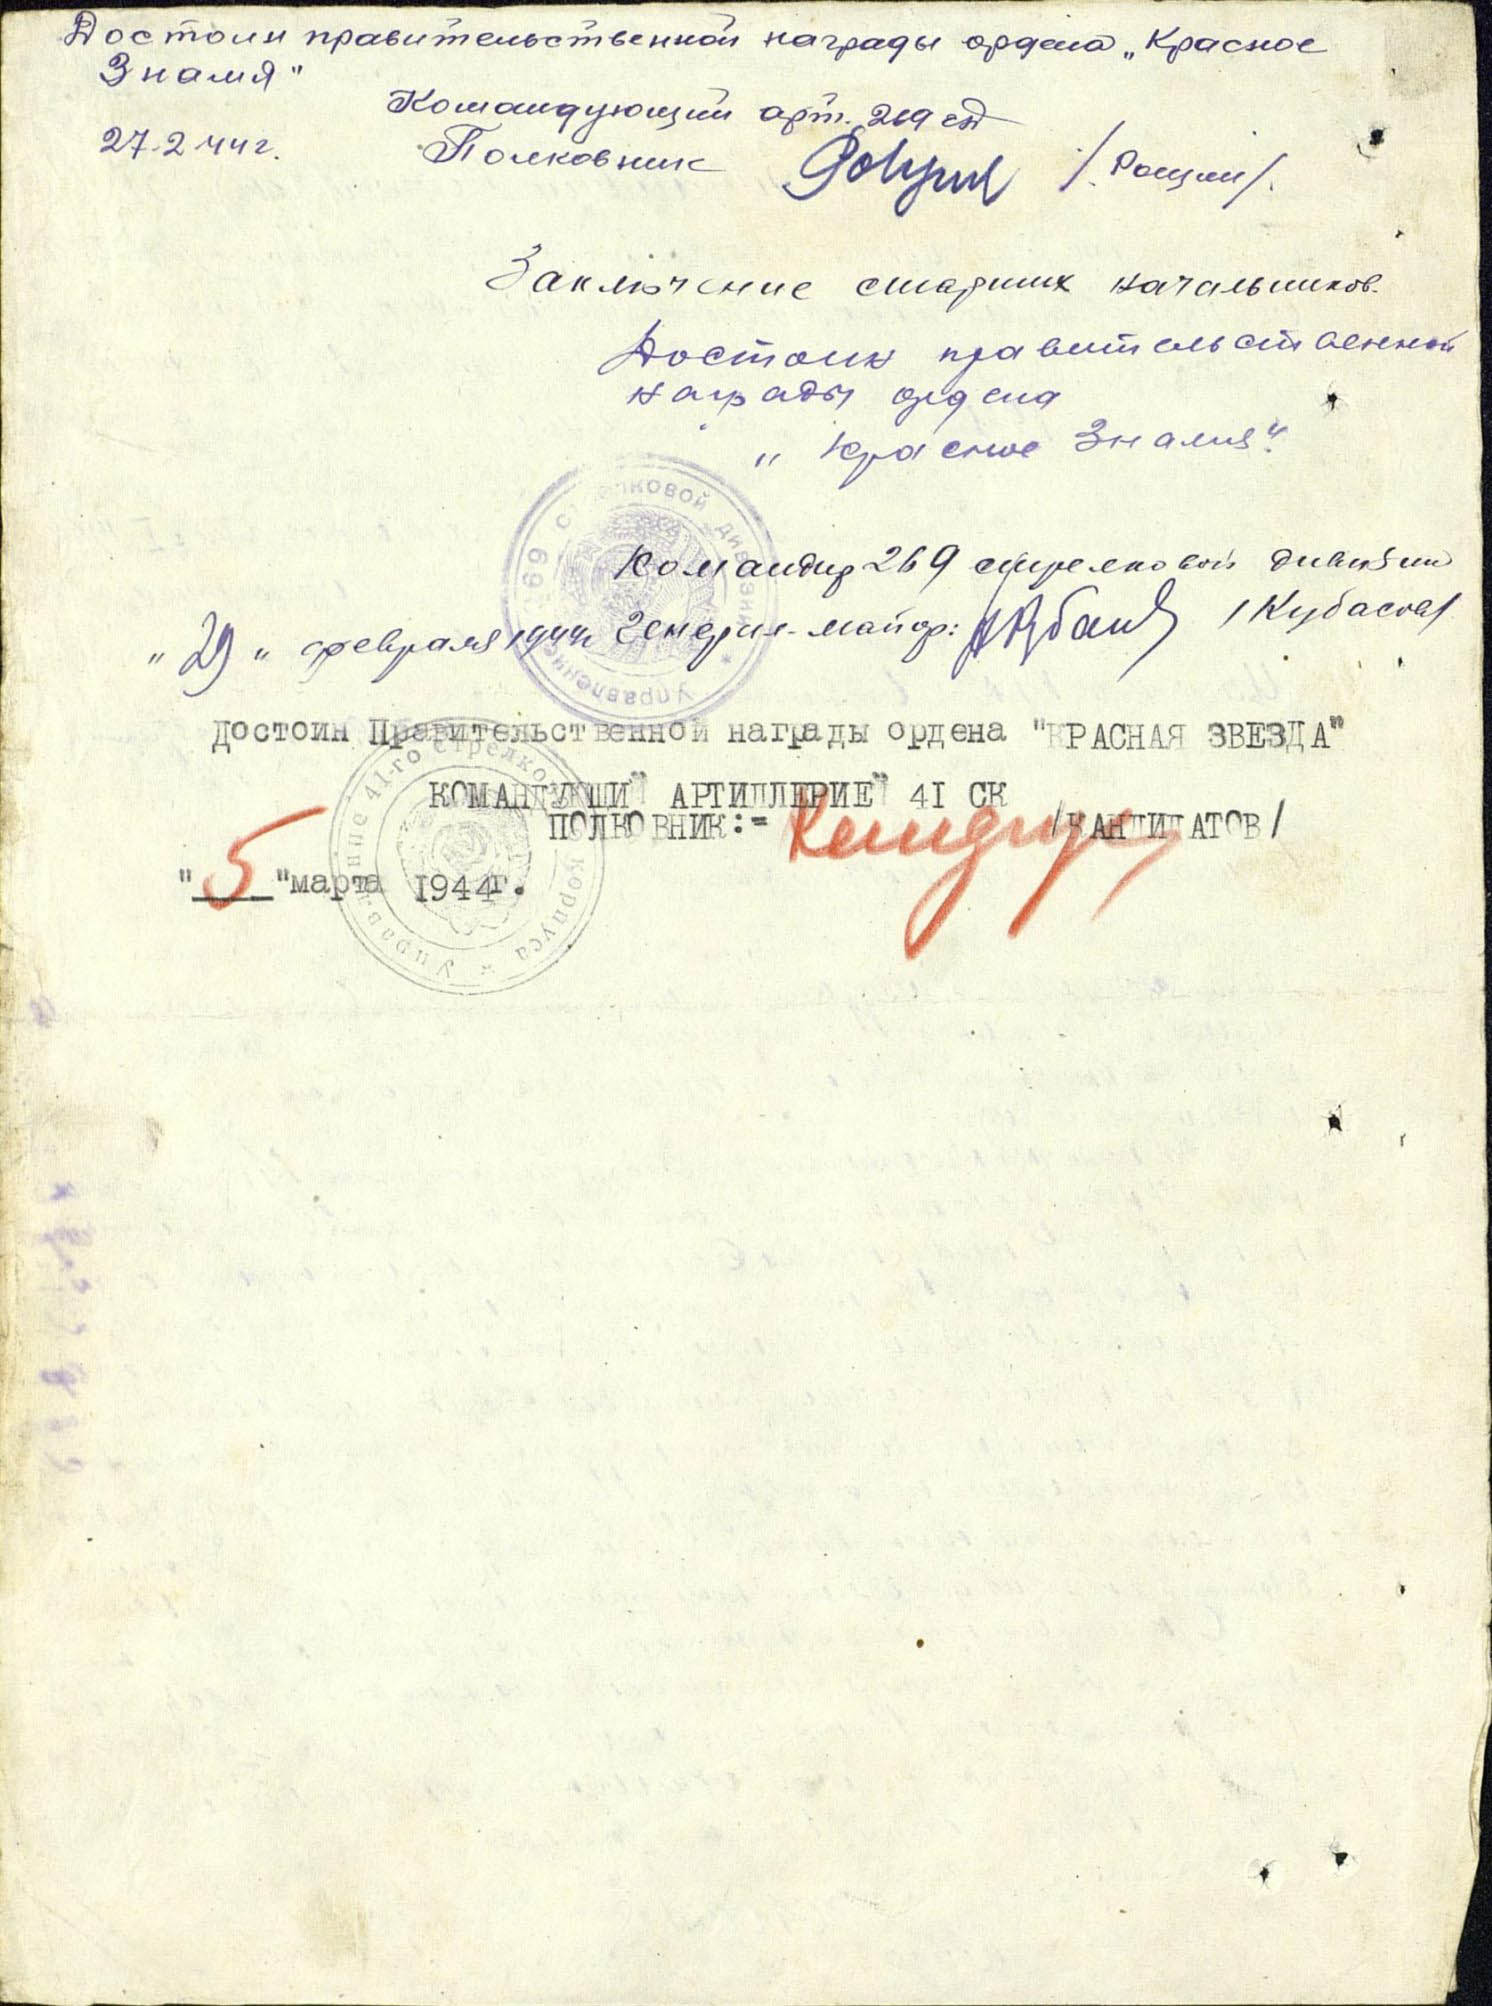 Достоин правительственной награды ордена „Красное
Знамя"
Командующий арт. 269 сд
27.2.44г. Полковник /Рощин/.
Заключение старших начальников.
Достоин правительственной
награды ордена
„Красное Знамя".
Командир 269 стрелковой дивизии
„29„ февраля 1944г Генерал-майор: /Кубасов/
Управление 269 стрелковой дивизии *
Достоин Правительственной награды ордена "КРАСНАЯ ЗВЕЗДА"
КОМАНДУЮЩИЙ АРТИЛЛЕРИЕЙ 41 СК
ПОЛКОВНИК:= /КАНДИДАТОВ/
"5"марта 1944г.
Управление 41-го стрелкового корпуса *